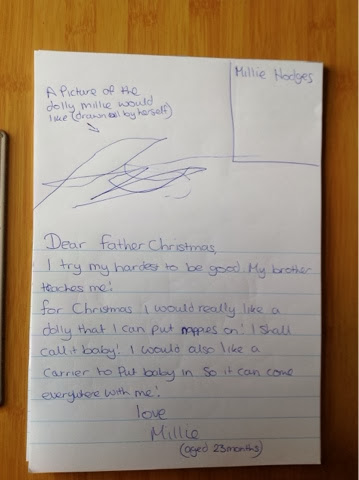 Millie Hodges
A picture of the
dolly millie would
like (drawn by herself)
Dear Father Christmas,
I try my hardest to be good. My brother
teaches me!
for Christmas I would really like a
dolly that I can put nappies on! I shall
call it baby! I would also like a
Carrier to Put baby in. So it can come
everywhere with me!
love
Millie
(aged 23 months)